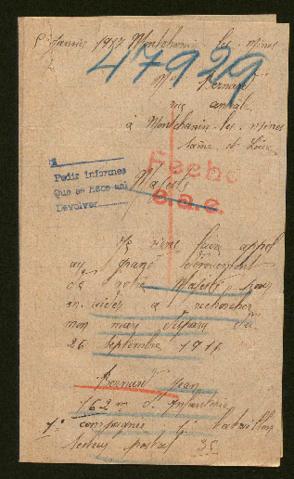 Janvier 1917 Montchanin les mines
47929
Me Bernard
rue centrale
à Montchanin-les-mines
Saône et Loire
Fecho
c.a.c.
Pedir informes
Que se hace un
Devolver
Majesté
Je viens faire appel
au grand dévouement
de votre Majesté pour
m'aider a rechercher
mon mari disparu
26 septembre 191
Bernard Jean
162 d'infanterie
compagnie bataillon
secteur postal